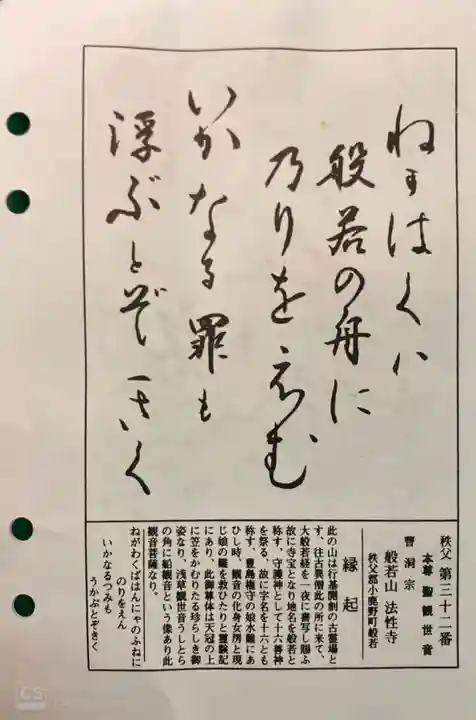 ねがはくハ
般若の舟に
乃りをえむ
いかなる罪も
浮ぶとぞきく
秩父 第三十二番
本尊 聖観世音
曹洞宗
般若山 法性寺
秩父郡小鹿野町般若
縁起
此の山は行基開創の古霊場と
す、往古異僧此の所に来て、
大般若経を一夜に書写し賜ふ
故に寺宝となり地名を般若と
称す、守護神として十六善神
を祭る、故に字名を十六とも
称す、豊島権守の娘水難にあ
ひし時、観音の化身女房と現
じ娘の難を救ひたりと霊験記
にあり、此御尊体は天冠の上
に笠をかむりたる珍らしき御
姿なり、浅草観世音うしとら
の角に船観音という像あり此
観音菩薩なり。
ねがわくばはんにゃのふねに
のりをえん
いかなるつみも
うかぶとぞきく
CS